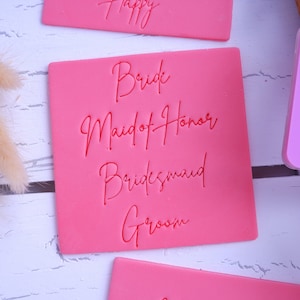 Happy
Bride
Maid of Honor
Bridesmaid
Groom